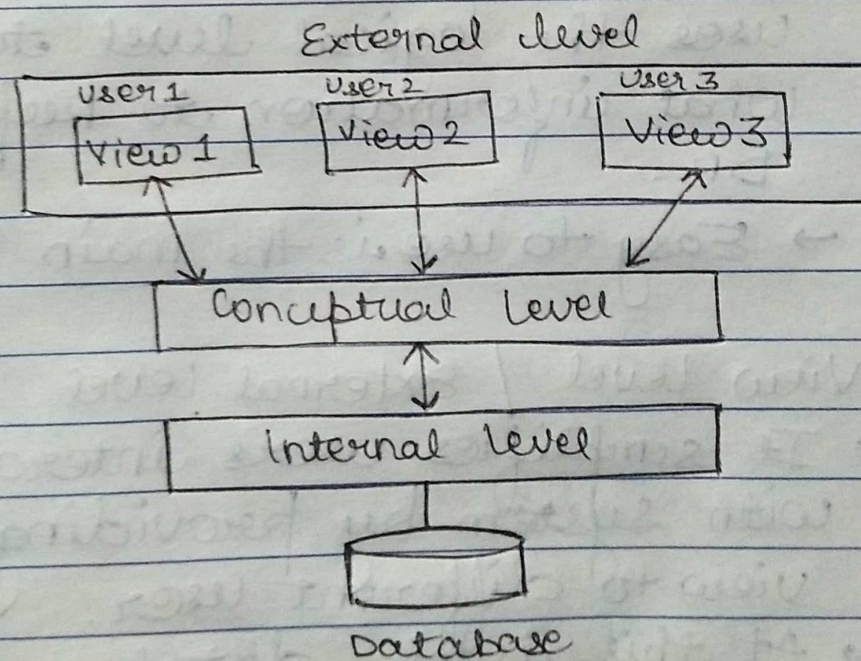 External level
user 1 user 2 user 3
View 1 View 2 View 3
Conceptual level
Internal level
Database